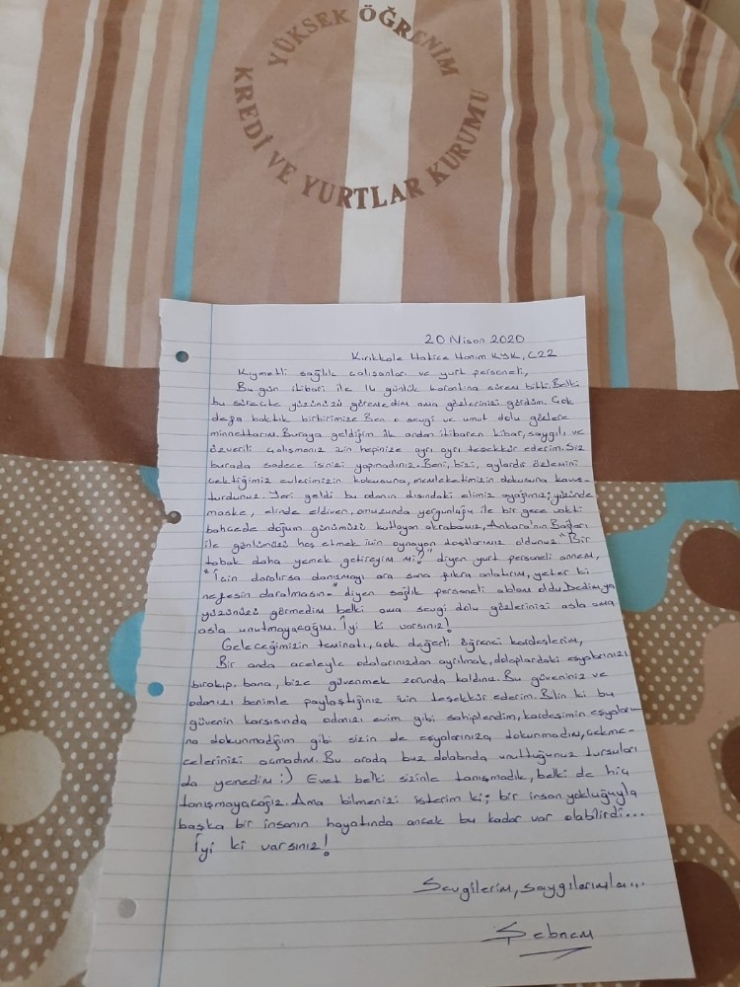 YÜKSEK ÖĞRENİM
KREDİ VE YURTLAR KURUMU
20 Nisan 2020
Kırıkkale Hatice Hanım KYK, C22
Kıymetli sağlık çalışanları ve yurt personeli,
Bu gün itibari ile 14 günlük karantina sürem bitti. Belki
bu süreçte yüzünüzü göremedim ama gözlerinizi gördüm. Çok
defa baktık birbirimize. Ben o sevgi ve umut dolu gözlere
minnettarım. Buraya geldiğim ilk andan itibaren kibar, saygılı, ve
özverili çalışmanız için hepinize ayrı ayrı teşekkür ederim. Siz
burada sadece işinizi yapmadınız. Beni, bizi, aylardır özlemini
çektiğimiz evlerimizin kokusuna, memleketimizin dokusuna kavuş-
turdunuz. Yeri geldi bu odanın dışındaki elimiz ayağımız; yüzünde
maske, elinde eldiven, omuzunda yorgunluğu ile bir gece vakti
bahçede doğum günümüzü kutlayan akrabamız, Ankara'nın Bağları
ile gönlümüzü hoş etmek için oynayan dostlarımız oldunuz. "Bir
tabak daha yemek getireyim mi?" diyen yurt personeli annem,
"İçin daralırsa danışmayı ara sana fıkra anlatırım, yeter ki
nefesin daralmasın" diyen sağlık personeli ablam oldu. Dedim ya
yüzünüzü görmedim belki ama sevgi dolu gözlerinizi asla ama
asla unutmayacağım. İyi ki varsınız!
Geleceğimizin teminatı, çok değerli öğrenci kardeşlerim,
Bir anda aceleyle odalarınızdan ayrılmak, dolaplardaki eşyalarınızı
bırakıp bana, bize güvenmek zorunda kaldınız. Bu güveniniz ve
odanızı benimle paylaştığınız için teşekkür ederim. Bilin ki bu
güvenin karşısında odanızı evim gibi sahiplendim, kardeşimin eşyaları-
na dokunmadığım gibi sizin de eşyalarınıza dokunmadım, çekme-
celerinizi açmadım. Bu arada buz dolabında unuttuğunuz turşuları
da yemedim :) Evet belki sizinle tanışmadık, belki de hiç
tanışmayacağız. Ama bilmenizi isterim ki; bir insan yokluğuyla
başka bir insanın hayatında ancak bu kadar var olabilirdi...
İyi ki varsınız!
Sevgilerim, saygılarımla...
Şebnem